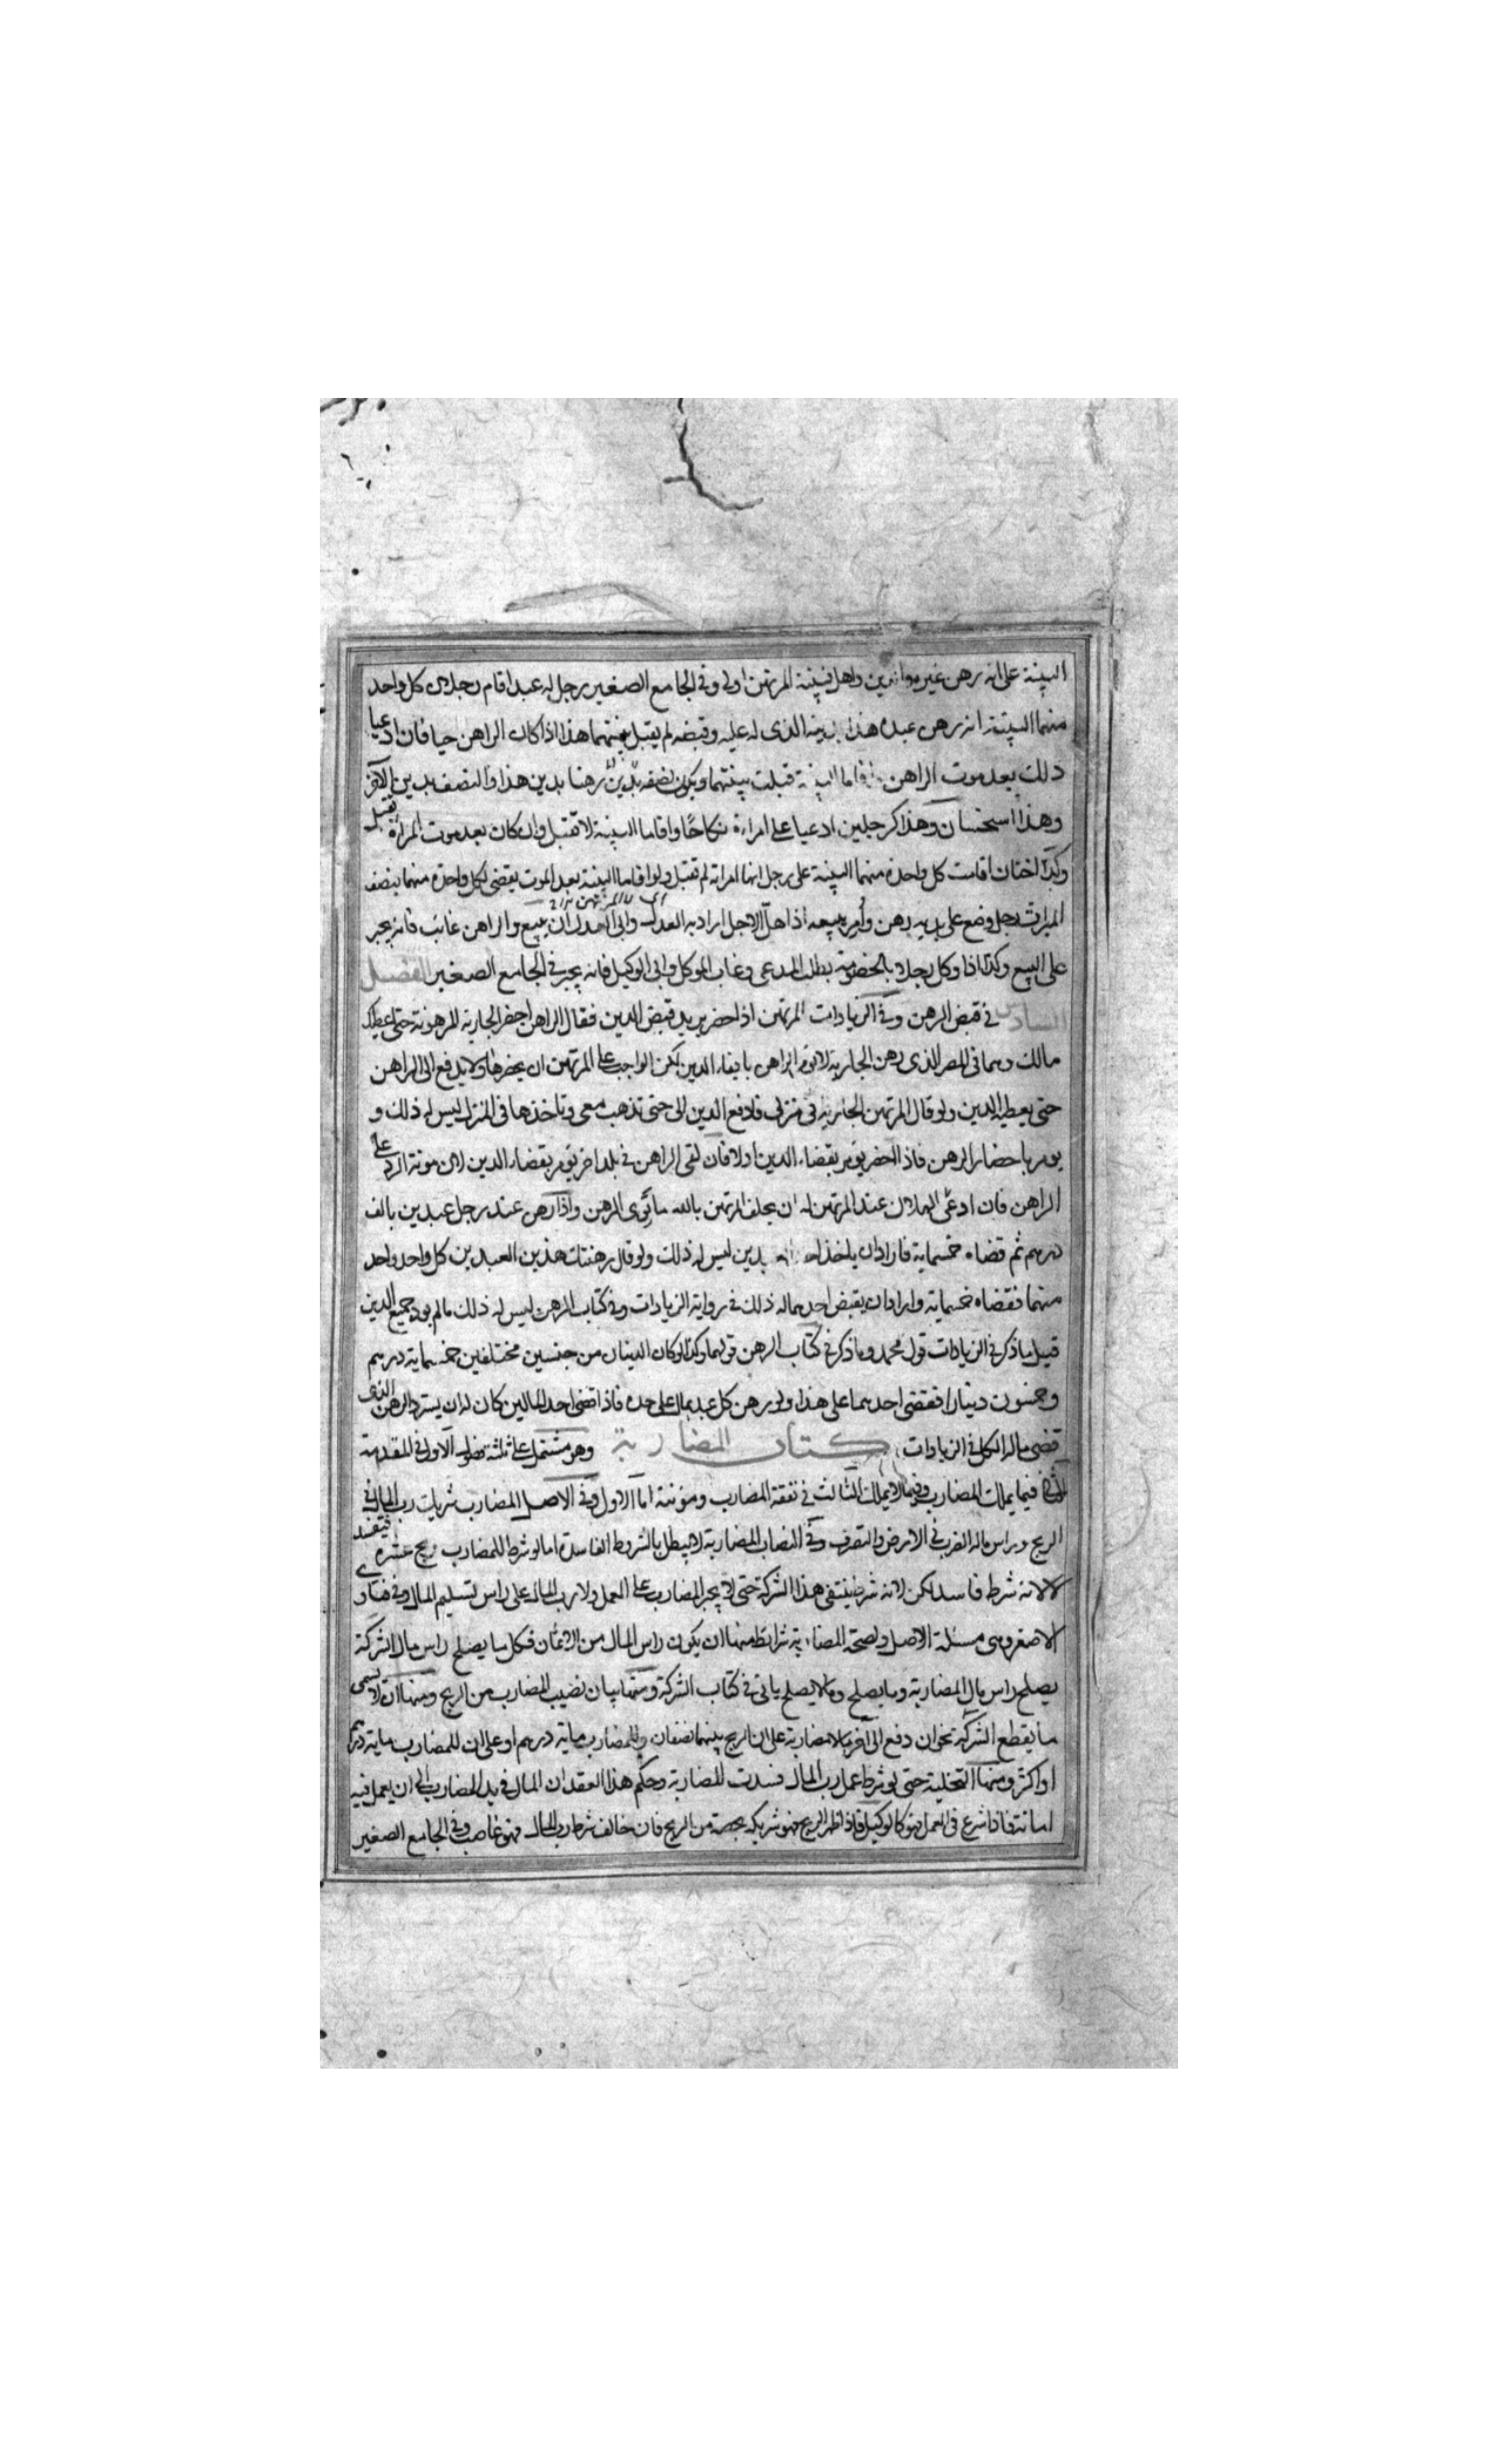 البينة على انه رهن غير مواضعين واهل فبينة المرتهن اولى وفى الجامع الصغير رجل له عبد اقام رجلان كل واحد
منهما البينة انه رهن عبده هذا بدينه الذى له عليه وقبضه لم يقبل بينتهما هذا اذا كان الراهن حيا فان ادعيا
ذلك بعد موت الراهن فاقاما البينة قبلت بينتهما ويكون نصفه رهنا بدين هذا والنصف بدين الآخر
وهذا استحسان وهذا كرجلين ادعيا على امراة نكاحا واقاما البينة لا تقبل وان كان بعد موت المراة يقبل
وكذا اختان اقامت كل واحدة منهما البينة على رجل انها امراته لم تقبل ولو اقاما البينة بعد الموت يقضى لكل واحدة منهما بنصف
الميراث رجل وضع على يديه رهن وأمر ببيعه اذا حل الاجل اراد به العدل وابى العدل ان يبيع والراهن غائب فانه يجبر
على البيع وكذا اذا وكل رجلا بالخصومة بطلب المدعى وغاب الموكل وابى الوكيل فانه يجبر فى الجامع الصغير الفصل
السادس فى قبض الرهن وفى الزيادات المرتهن اذا حضر يريد قبض الدين فقال الراهن احضر الجارية المرهونة حتى اعطيك
مالك وهما فى المصر الذى رهن الجارية لا يؤمر الراهن بايفاء الدين لكن الواجب على المرتهن ان يحضرها ولا يدفع الى الراهن
حتى يعطيه الدين ولو قال المرتهن الجارية فى منزلى فادفع الدين الى حتى تذهب معى وتاخذها فى المنزل ليس له ذلك و
يومر باحضار الرهن فاذا احضر يؤمر بقضاء الدين اولا فان لقى الراهن فى بلد اخر يؤمر بقضاء الدين لان مونة الرد على
الراهن فان ادعى الهلاك عند المرتهن له ان يحلف المرتهن بالله ما توى الرهن واذا رهن عند رجل عبدين بالف
درهم ثم قضاه خمسماية فاراد ان ياخذ احد العبدين ليس له ذلك ولو قال رهنتك هذين العبدين كل واحد واحد
منهما فقضاه خمسماية واراد ان يقبض احدهما له ذلك فى رواية الزيادات وفى كتاب الرهن ليس له ذلك ما لم يود جميع الدين
قيل ما ذكر فى الزيادات قول محمد وما ذكر فى كتاب الرهن قولهما وكذا لو كان الدينان من جنسين مختلفين خمسماية درهم
وخمسون دينارا فقضى احدهما على هذا ولو رهن كل عبد بمال على حده فاذا قضى احد المالين كان له ان يسترد الرهن الذى
قضى ماله الكل فى الزيادات كتاب المضاربة وهو مشتمل على ثلثة فصول الاول فى المقدمة
الثانى فيما يملك المضارب وفيما لا يملك الثالث فى نفقة المضارب ومؤنته اما الاول وفى الاصل المضارب شريك رب المال فى
الربح وراس ماله الضرب فى الارض والتصرف وفى النصاب المضاربة لا يبطل بالشروط الفاسدة اما لو شرط للمضارب ربح عشرة فيفسد
لا لانه شرط فاسد لكن لانه شرط ينتفى هذا الشركة حتى لا يجبر المضارب على العمل ولا رب المال على راس تسليم المال وفى فتاوى
الاصغر وهى مسئلة الاصل ولصحة المضاربة شرائط منها ان يكون راس المال من الاثمان فكل ما يصلح راس مال الشركة
يصلح راس مال المضاربة وما يصلح وما لا يصلح ياتى فى كتاب الشركة ومنها بيان نصيب المضارب من الربح ومنها ان لا يسمى
ما يقطع الشركة نحو ان دفع الى آخر مالا مضاربة على ان الربح بينهما نصفان وللمضارب ماية درهم او على ان للمضارب ماية درهم
او اكثر ومنها التخلية حتى لو شرط عمل رب المال فسدت المضاربة وحكم هذا العقد ان المال فى يد المضارب الى ان يعمل فيه
امانة فاذا شرع فى العمل فهو كالوكيل فاذا ظهر الربح فهو شريكه بحصته من الربح فان خالف شرط رب المال فهو غاصب وفى الجامع الصغير